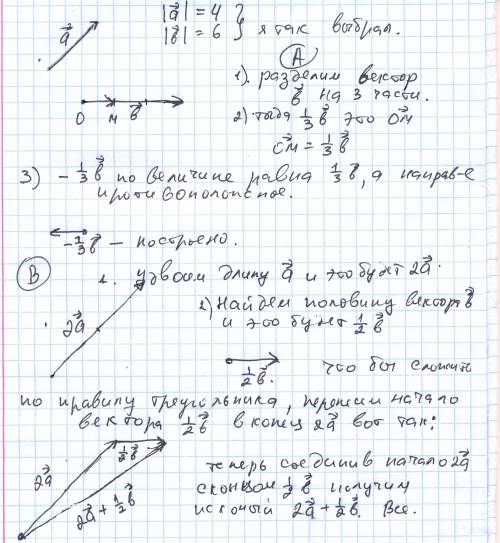 a⃗
|a⃗| = 4
|b⃗| = 6 } я так выбрал.
A
1). разделим вектор
b⃗ на 3 части.
O M b⃗
2) тогда 1/3 b⃗ это OM⃗
OM⃗ = 1/3 b⃗
3) - 1/3 b⃗ по величине равна 1/3 b⃗, а направ-е
противоположное.
-1/3 b⃗ – построено.
B
1. удвоим длину a⃗ и это будет 2a⃗.
2a⃗
2) Найдем половину вектора b⃗
и это будет 1/2 b⃗
1/2 b⃗.
что бы сложить
по правилу треугольника, перенесём начало
вектора 1/2 b⃗ в конец 2a⃗ вот так:
2a⃗
1/2 b⃗
2a⃗ + 1/2 b⃗
теперь соединив начало 2a⃗
с концом 1/2 b⃗ получим
искомый 2a⃗ + 1/2 b⃗. Все.